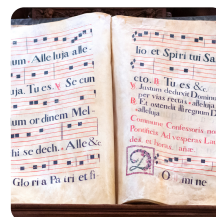 um. Alle luja alle-
uja. Tu es. ℣ Se cun
um or dinem Mel-
hi se dech. Allе &c
Glo ri a Pa tri et fi
lio et Spiri tui Sa
cto. ℟ Tu es &c
℣ Justum deduxit Dominu
per vias rectas. alleluja
℟ Et ostendit illi regnum D
alleluja
Commune Confessoris no
Pontificis Ad vesperas Lau
Do mi ne